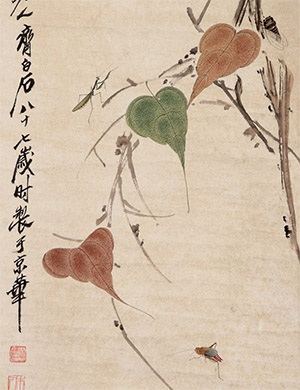 人齊白石八十七歲時製于京華